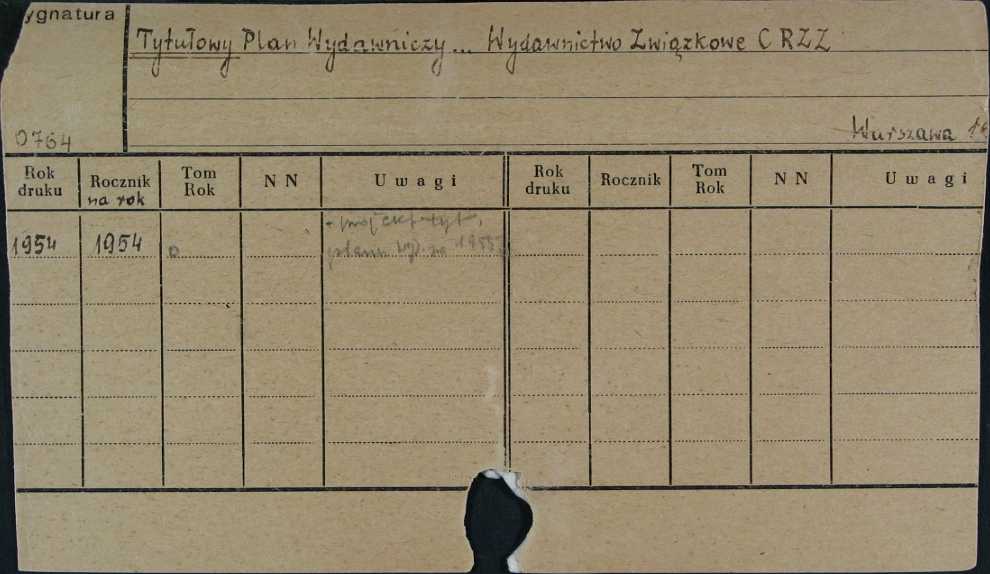 ygnatura
Tytułowy Plan Wydawniczy... Wydawnictwo Związkowe CRZZ
0764
Warszawa
Rok druku Rocznik na rok Tom Rok NN Uwagi Rok druku Rocznik Tom Rok NN Uwagi
- projekt tyt.
1954 1954 o planu wyd. na 1955